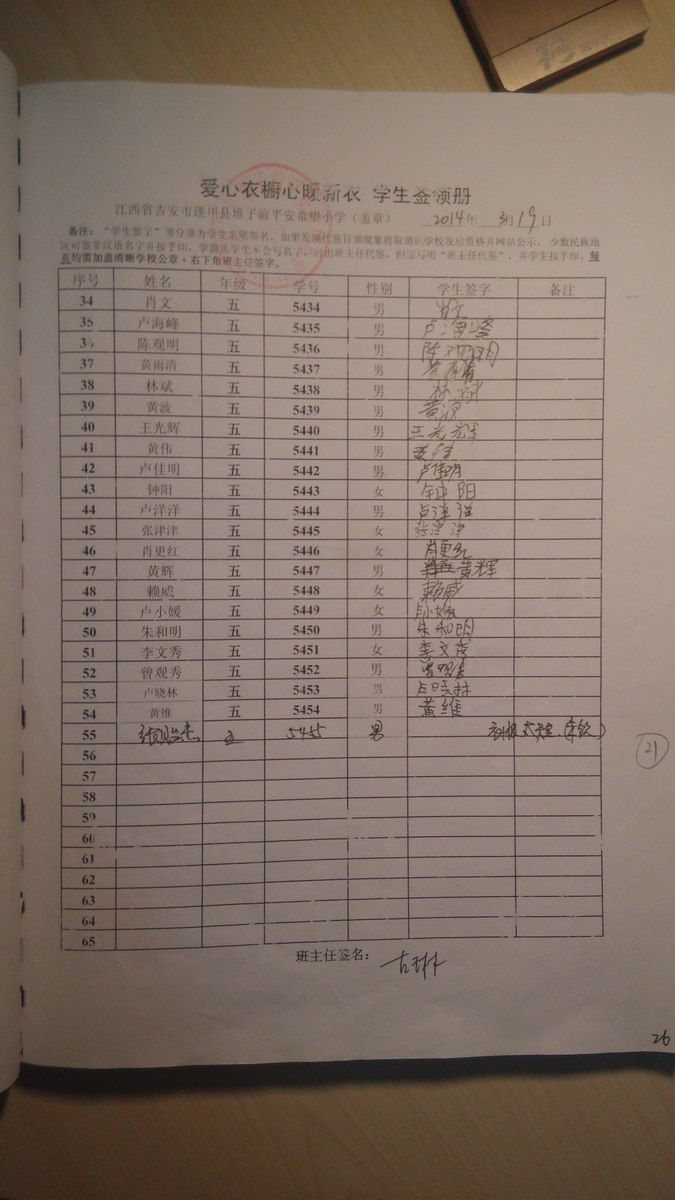 爱心衣橱心暖新衣 学生签领册
江西省吉安市遂川县堆子前平安希望小学（盖章） 2014年 3月19日
备注："学生签字"部分须为学生亲笔签名，如果发现代签冒领现象将取消该学校发放资格并网站公示。少数民族地
区可签非汉语名字并按手印，学前班学生不会写名字，可由班主任代签，但需写明"班主任代签"，并学生按手印。每
页均需加盖清晰学校公章＋右下角班主任签字。
序号 姓名 年级 学号 性别 学生签字 备注
34 肖文 五 5434 男 肖文
35 卢海峰 五 5435 男 卢海峰
36 陈观明 五 5436 男 陈观明
37 黄雨清 五 5437 男 黄雨清
38 林斌 五 5438 男 林斌
39 黄波 五 5439 男 黄波
40 王光辉 五 5440 男 王光辉
41 黄伟 五 5441 男 黄伟
42 卢佳明 五 5442 男 卢佳明
43 钟阳 五 5443 女 钟阳
44 卢洋洋 五 5444 男 卢洋洋
45 张津津 五 5445 女 张津津
46 肖更红 五 5446 女 肖更红
47 黄辉 五 5447 男 黄辉
48 赖威 五 5448 女 赖威
49 卢小媛 五 5449 女 卢小媛
50 朱和明 五 5450 男 朱和明
51 李文秀 五 5451 女 李文秀
52 曾观秀 五 5452 男 曾观秀
53 卢晓林 五 5453 男 卢晓林
54 黄维 五 5454 男 黄维
55 五 5455 男
21
56
57
58
59
60
61
62
63
64
65
班主任签名：
26